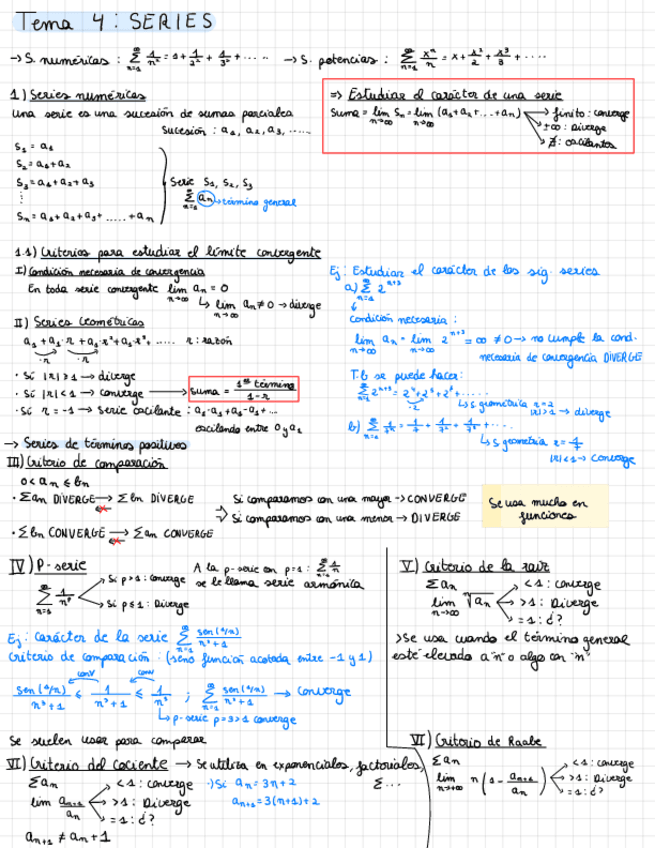 Tema 4: SERIES
→ S. numéricas: ∑_{n=1}^{∞} 1/n² = 1 + 1/2² + 1/3² + ..... → S. potencias: ∑_{n=1}^{∞} xⁿ/n = x + x²/2 + x³/3 + ....
1) Series numéricas
Una serie es una sucesión de sumas parciales
Sucesión: a₁, a₂, a₃, .....
S₁ = a₁
S₂ = a₁+a₂
S₃ = a₁+a₂+a₃
⋮
Sₙ = a₁+a₂+a₃+.....+aₙ
Serie S₁, S₂, S₃
∑_{n=1}^{∞} aₙ → término general
⇒ Estudiar el carácter de una serie
Suma = lim_{n→∞} Sₙ = lim_{n→∞} (a₁+a₂+...+aₙ) → finito: converge
→ ±∞: Diverge
→ ∄: oscilantes
1.1) Criterios para estudiar el límite convergente
I) Condición necesaria de convergencia
En toda serie convergente lim_{n→∞} aₙ = 0
↳ lim_{n→∞} aₙ ≠ 0 → diverge
II) Series Geométricas
a₁ + a₁·r + a₁·r² + a₁·r³+ ..... r: razón
·r ·r
· Si |r| ≥ 1 → diverge
· Si |r| < 1 → converge → Suma = 1er término / 1-r
· Si r = -1 → Serie oscilante: a₁-a₁+a₁-a₁+...
oscilando entre 0 y a₁
Ej: Estudiar el carácter de las sig. series
a) ∑_{n=1}^{∞} 2ⁿ⁺³
Condición necesaria:
lim_{n→∞} aₙ = lim_{n→∞} 2ⁿ⁺³ = ∞ ≠ 0 → no cumple la cond.
necesaria de convergencia DIVERGE
T.b se puede hacer:
∑_{n=1}^{∞} 2ⁿ⁺³ = 2⁴ + 2⁵ + 2⁶ + .....
·2 ↳ S geométrica r = 2
|r| > 1 → diverge
b) ∑_{n=1}^{∞} 1/7ⁿ = 1/7 + 1/7² + 1/7³ + ....
↳ S geometria r = 1/7
|r| < 1 → Converge
→ Series de términos positivos
III) Criterio de comparación
0 < aₙ ≤ bₙ
· ∑aₙ DIVERGE → ∑bₙ DIVERGE
· ∑bₙ CONVERGE → ∑aₙ CONVERGE
Si comparamos con una mayor → CONVERGE
⇒ Si comparamos con una menor → DIVERGE
Se usa mucho en
funciones
IV) P-serie
∑_{n=1}^{∞} 1/nᵖ
Si p > 1: converge
Si p ≤ 1: Diverge
A la p-serie con p=1: ∑_{n=1}^{∞} 1/n
se le llama serie armónica
Ej: Carácter de la serie ∑_{n=1}^{∞} sen(1/n)/n³+1
Criterio de comparación: (seno función acotada entre -1 y 1)
conv conv
sen(1/n)/n³+1 ≤ 1/n³+1 ≤ 1/n³ ; ∑_{n=1}^{∞} sen(1/n)/n³+1 → Converge
↳ p-serie p=3>1 converge
Se suelen usar para comparar
V) Criterio de la raíz
∑aₙ
lim_{n→∞} ⁿ√aₙ
< 1: converge
> 1: Diverge
= 1: ¿?
> Se usa cuando el término general
esté elevado a "n" o algo con "n"
VI) Criterio del cociente → Se utiliza en exponenciales, factoriales,
∑aₙ
lim aₙ₊₁/aₙ
< 1: converge
> 1: Diverge
= 1: ¿?
·) Si aₙ = 3n+2
aₙ₊₁ = 3(n+1)+2
∑...
aₙ₊₁ ≠ aₙ + 1
VII) Criterio de Raabe
∑aₙ
lim_{n→+∞} n(1 - aₙ₊₁/aₙ)
< 1: converge
> 1: Diverge
= 1: ¿?